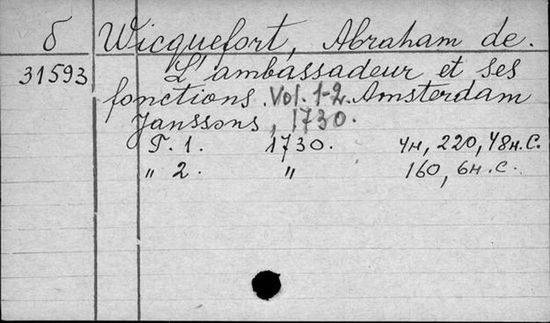 б Wicquefort, Abraham de.
31593 L'ambassadeur et ses
fonctions. Vol. 1-2. Amsterdam
Janssons, 1730.
Т. 1. 1730. 4н, 220, 48н.с.
„ 2. „ 160, 6н.с.